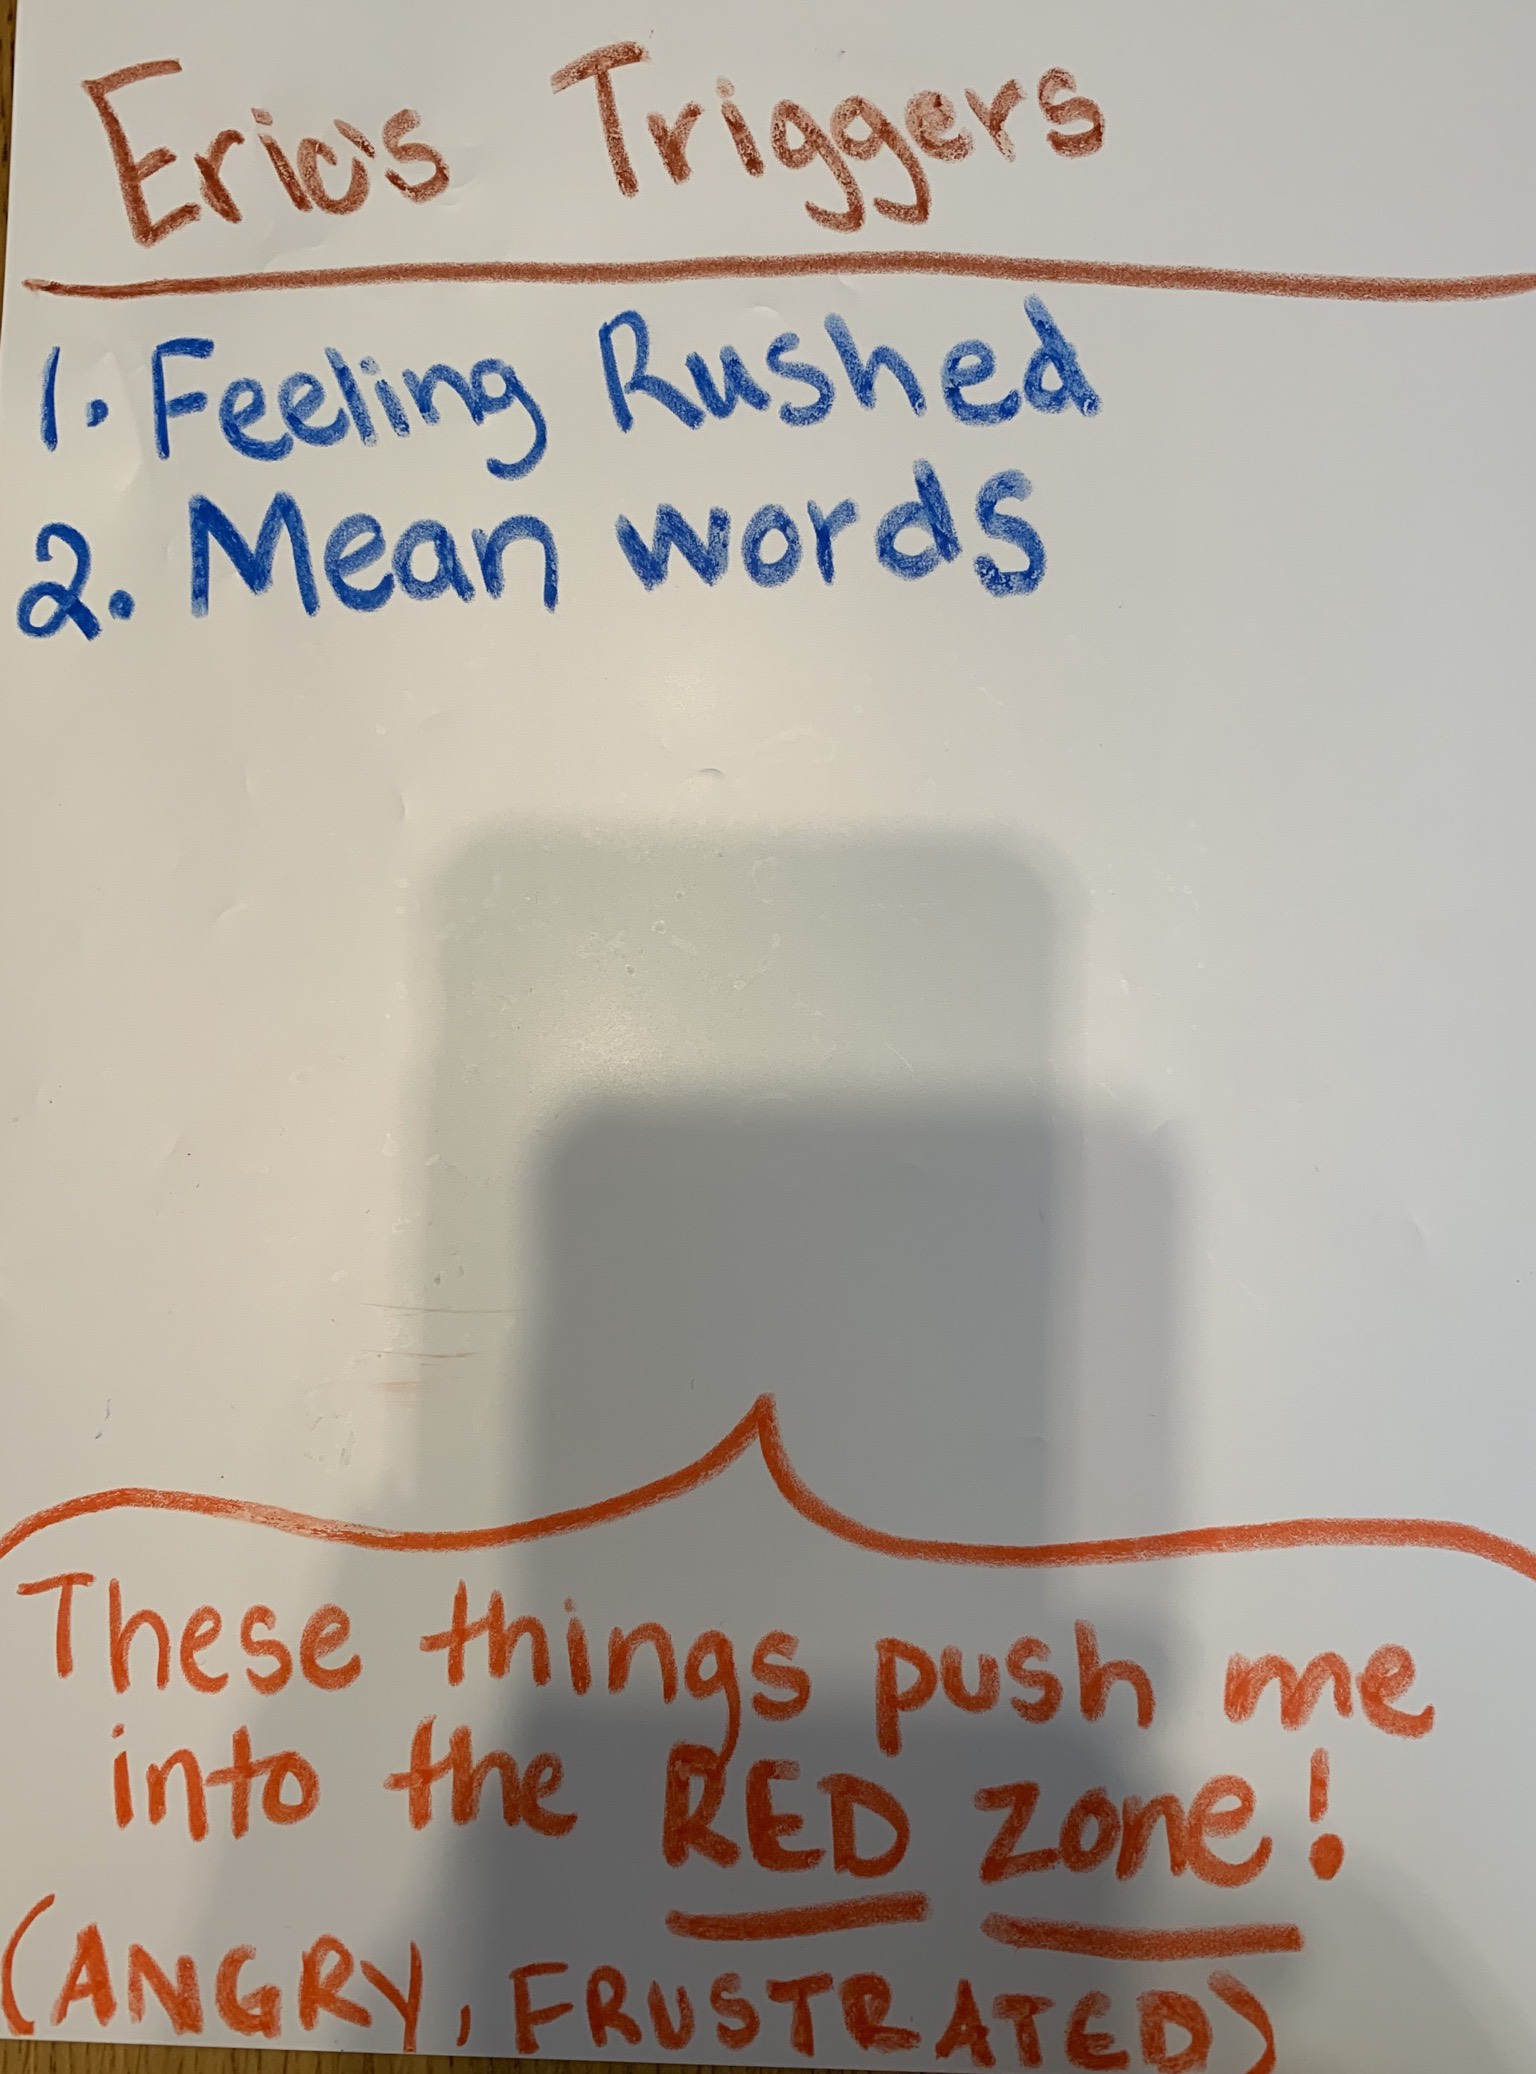 Eric's Triggers
1. Feeling Rushed
2. Mean words
These things push me
into the RED zone!
(ANGRY, FRUSTRATED)